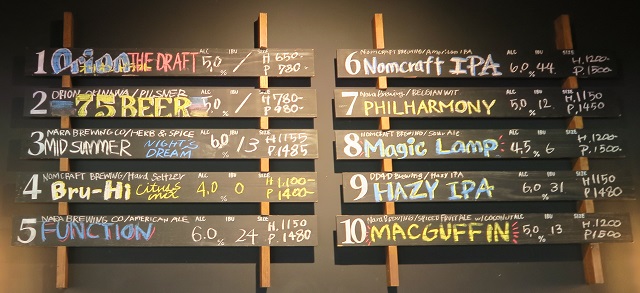 1 Orion THE DRAFT ALC 5,0 IBU / SIZE H.650- P.780-
2 ORION OKINAWA/PILSNER
75BEER 5,0 / H.780- P.980-
3 NARA BREWING CO/HERB & SPICE
MIDSUMMER NIGHT'S DREAM ALC 6,0 IBU 13 SIZE H.1155 P.1485
4 NOMCRAFT BREWING/Hard Seltzer
Bru-Hi Citrus mix ALC 4,0 IBU 0 SIZE H.1,100- P.1400-
5 NARA BREWING CO/AMERICAN ALE
FUNCTION ALC 6.0 IBU 24 SIZE H.1150 P.1480
6 NOMCRAFT BREWING/American IPA
Nomcraft IPA ALC 6.0 IBU 44 SIZE H.1200- P.1500-
7 Nara Brewing/BELGIAN WIT
PHILHARMONY ALC 5,0 IBU 12 SIZE H.1150 P.1450
8 NOMCRAFT BREWING/Sour Ale
Magic Lamp ALC 4,5 IBU 6 SIZE H.1200- P.1500
9 Brewing/Hazy IPA
HAZY IPA ALC 6,0 IBU 31 SIZE H.1150 P.1480
10 SPICED FRUIT ALE w/COCONUT
MACGUFFIN ALC 5,0 IBU 13 SIZE H.1200 P.1500